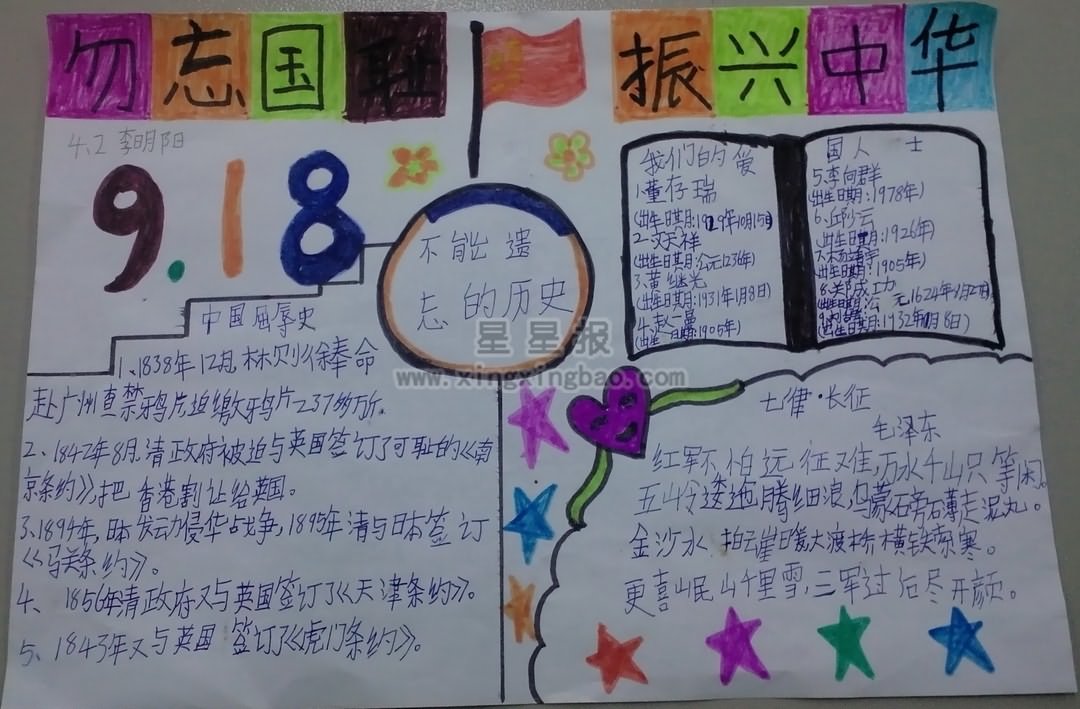 勿忘国耻 振兴中华
4.2 李明阳
9.18
不能遗
忘的历史
中国屈辱史
1、1838年12月,林则徐奉命
赴广州查禁鸦片,缴鸦片237多万斤。
2、1842年8月,清政府被迫与英国签订了可耻的《南
京条约》,把香港割让给英国。
3、1894年,日本发动侵华战争,1895年清与日本签订
《马关条约》。
4、1856年清政府又与英国签订了《天津条约》。
5、1843年又与英国签订了《虎门条约》。
我们的爱
1、董存瑞
(出生日期:1929年10月15日)
2、文天祥
(出生日期:公元1236年)
3、黄继光
(出生日期:1931年1月8日)
4、赵一曼
(出生日期:1905年)
国人士
5、李向群
(出生日期:1978年)
6、邱少云
(出生日期:1926年)
(出生日期:1905年)
8、郑成功
(出生日期:公元1624年
(出生日期:1932年1月8日)
七律·长征
毛泽东
红军不怕远征难,万水千山只等闲。
五岭逶迤腾细浪,乌蒙磅礴走泥丸。
金沙水拍云崖暖,大渡桥横铁索寒。
更喜岷山千里雪,三军过后尽开颜。
星星报
www.xingxingbao.com